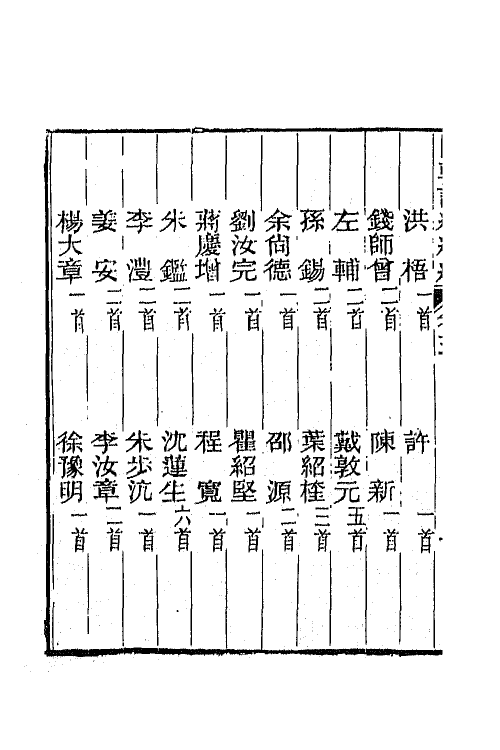 洪梧一首 許一首
錢師曾二首 陳新一首
左輔二首 戴敦元五首
孫錫二首 葉紹楏三首
余尙德一首 邵源二首
劉汝完一首 瞿紹堅一首
蔣慶增一首 程寬一首
朱鑑二首 沈蓮生六首
李澧二首 朱步沆一首
姜安二首 李汝章二首
楊大章一首 徐豫明一首